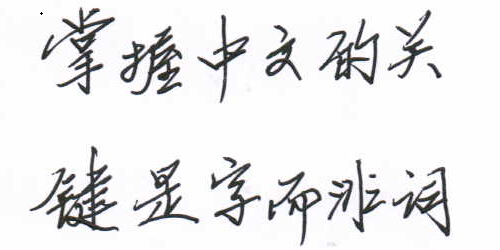 掌握中文的关
键是字而非词